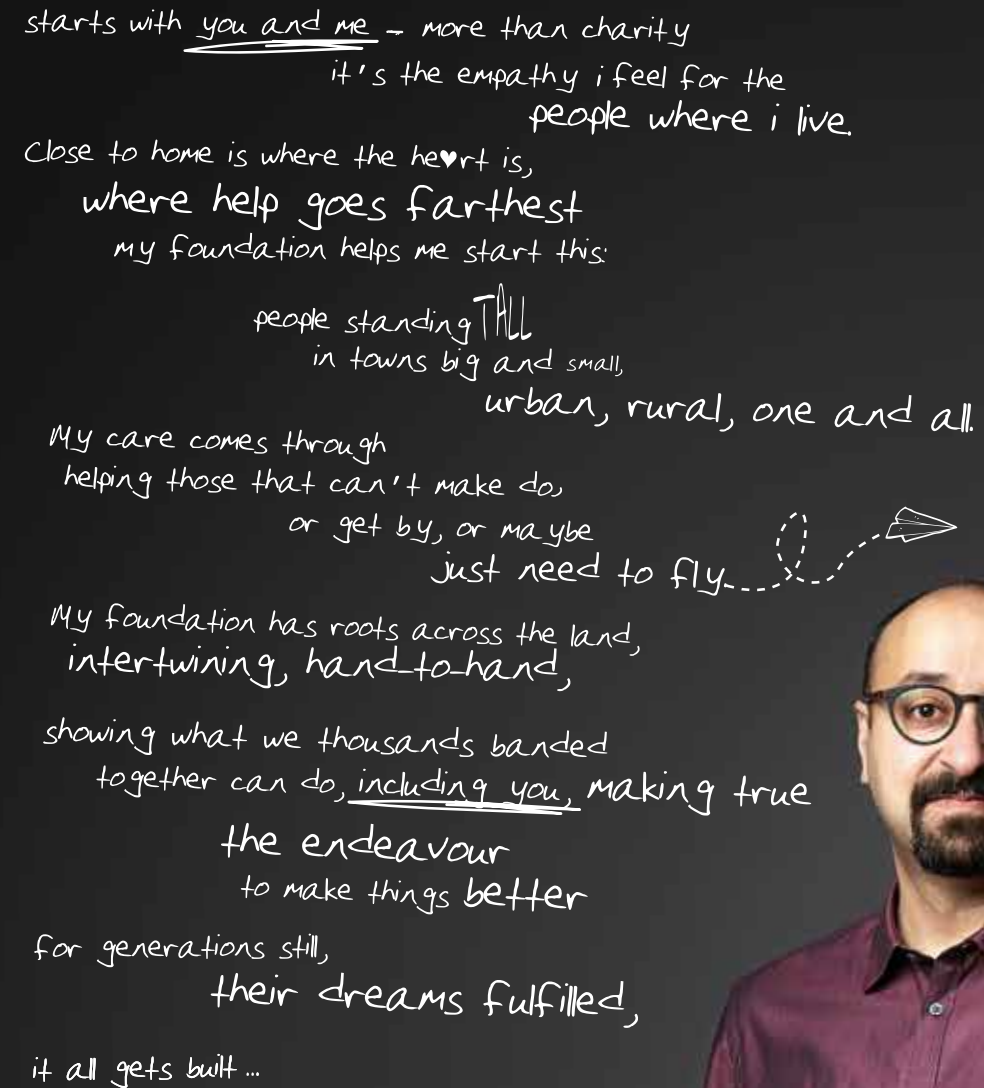 starts with you and me – more than charity
it's the empathy i feel for the
people where i live.
Close to home is where the he♥rt is,
where help goes farthest
my foundation helps me start this:
people standing TALL
in towns big and small,
urban, rural, one and all.
My care comes through
helping those that can't make do,
or get by, or maybe
just need to fly
My foundation has roots across the land,
intertwining, hand-to-hand,
showing what we thousands banded
together can do, including you, making true
the endeavour
to make things better
for generations still,
their dreams fulfilled,
it all gets built ...